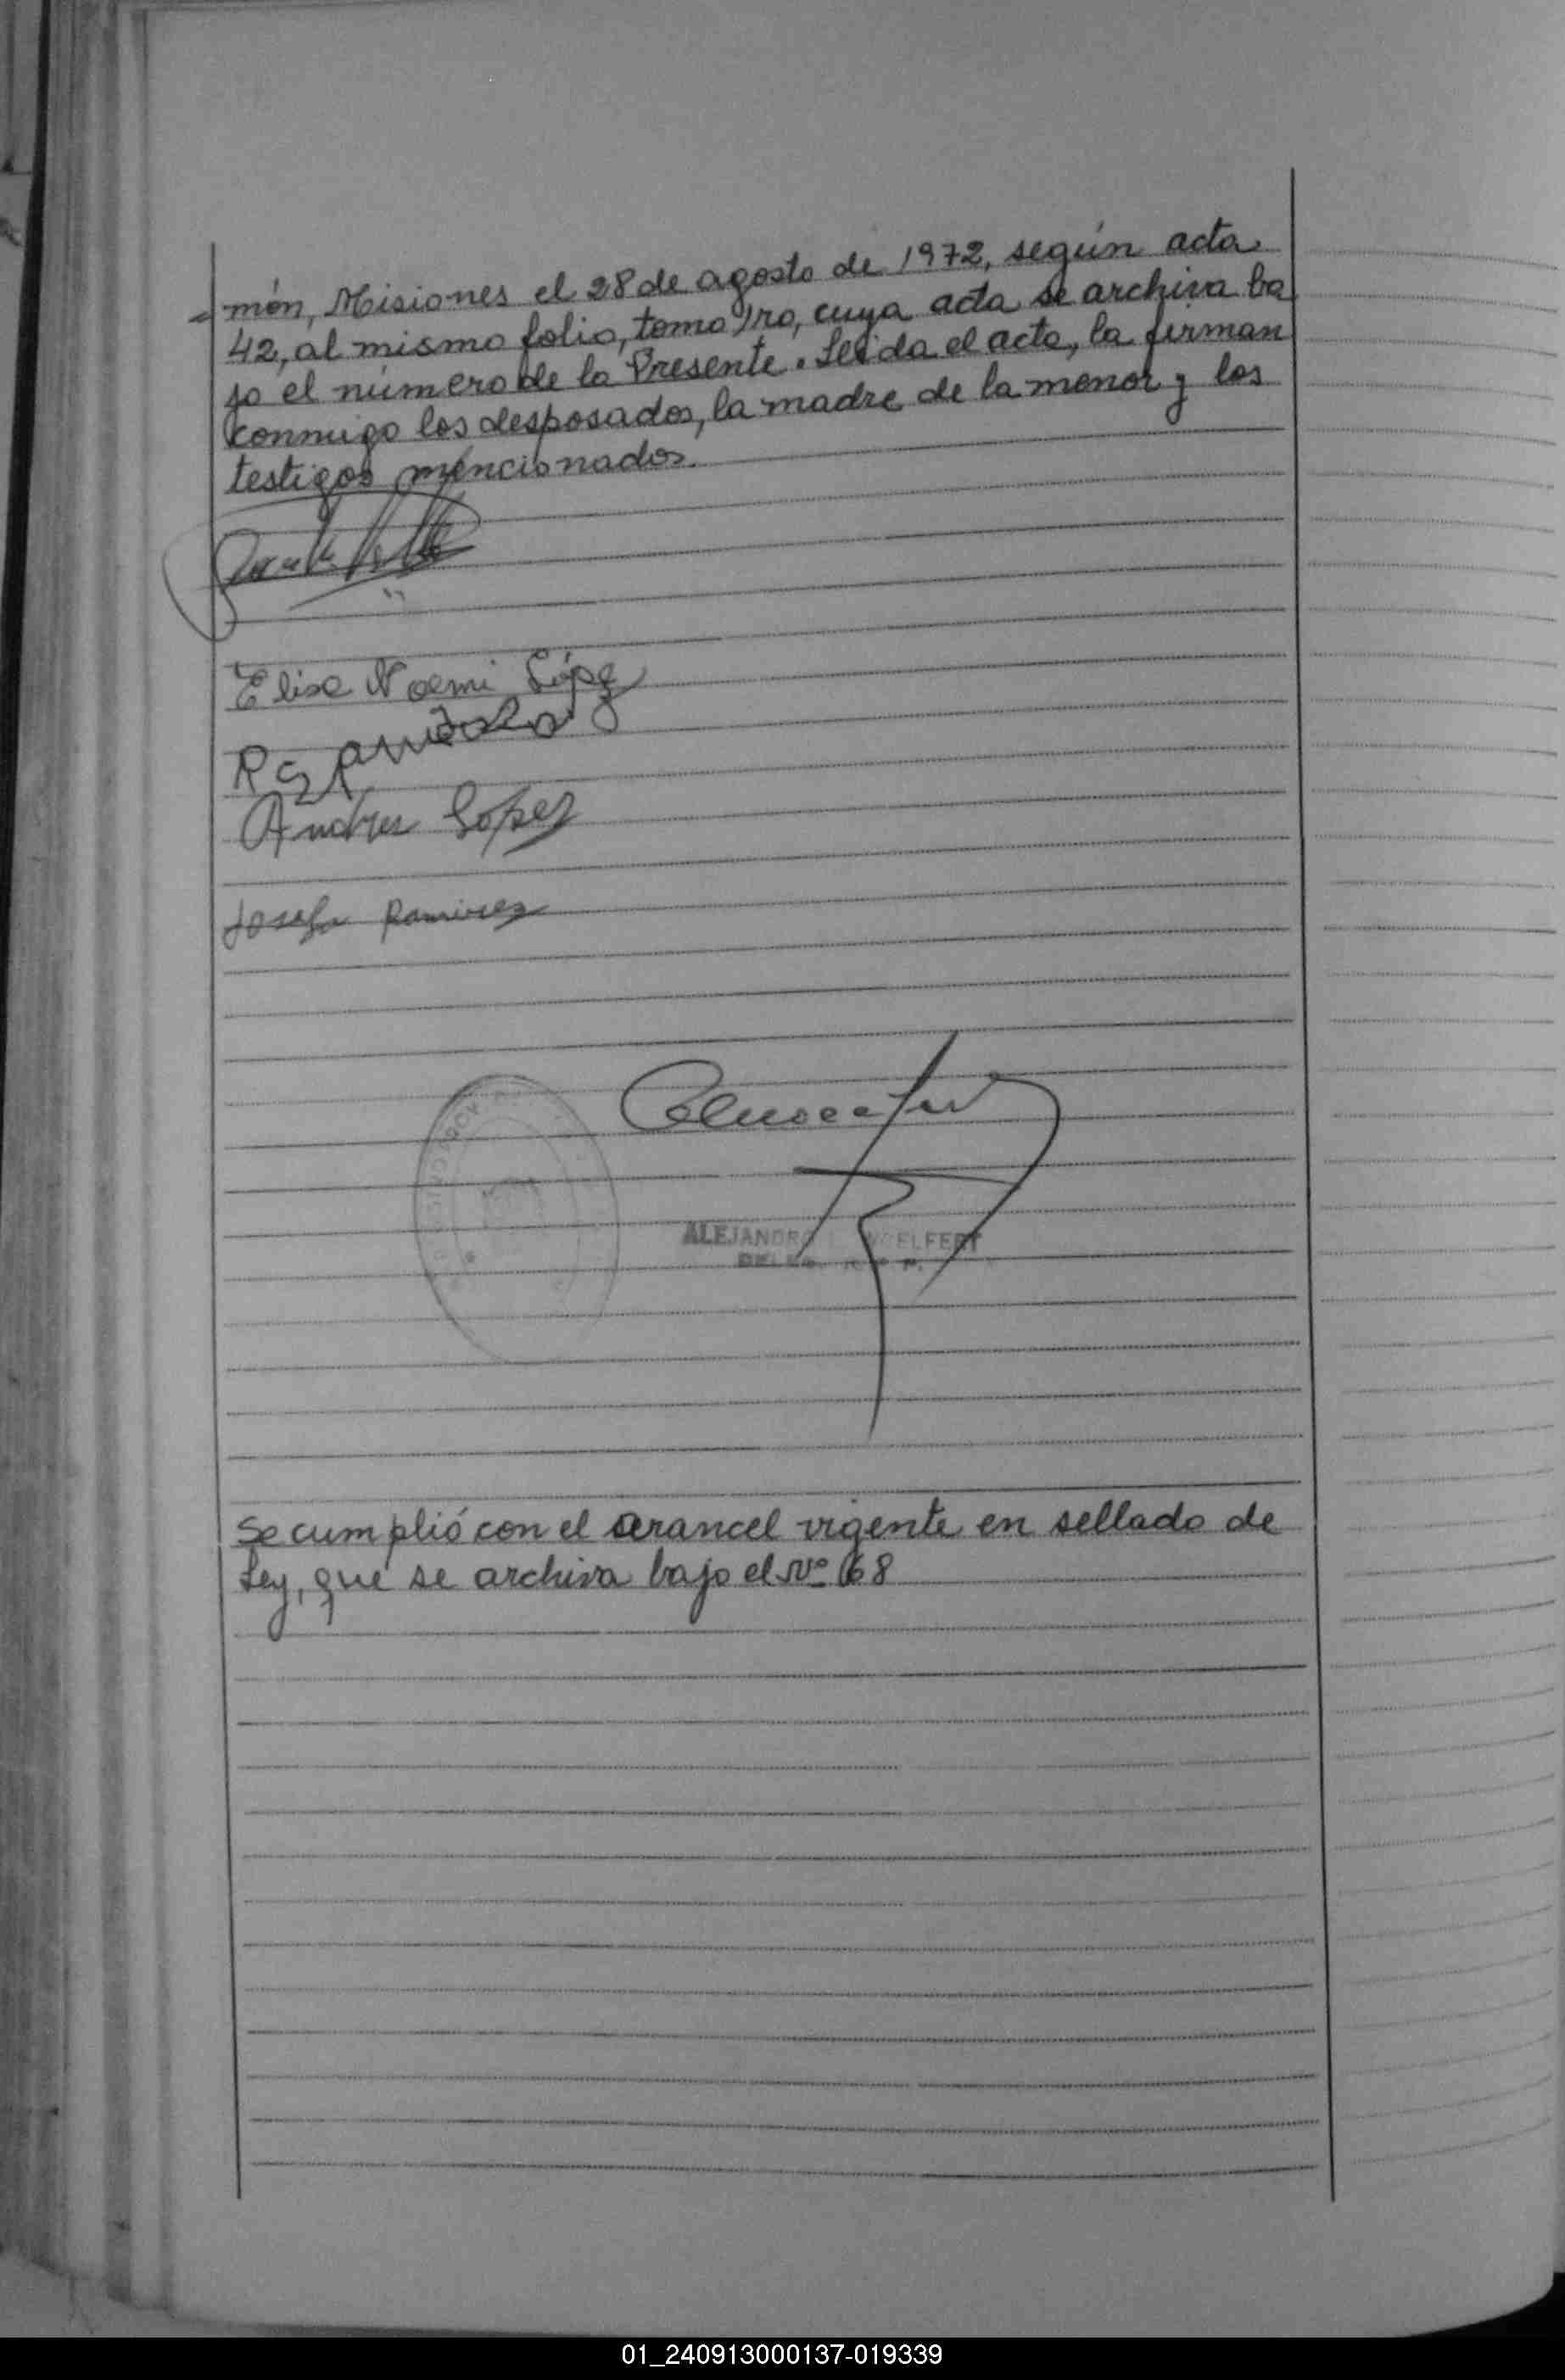 = món, Misiones el 28 de agosto de 1972, según acta
42, al mismo folio, tomo 1ro, cuya acta se archiva ba
jo el número de la Presente. Leida el acta, la firman
conmigo los desposados, la madre de la menor y los
testigos mencionados.
Elisa Noemi López
Andres Lopez
Josefa Ramirez
ALEJANDRO WOELFERT
Se cumplió con el arancel vigente en sellado de
Ley, que se archiva bajo el Nº 68
01_240913000137-019339